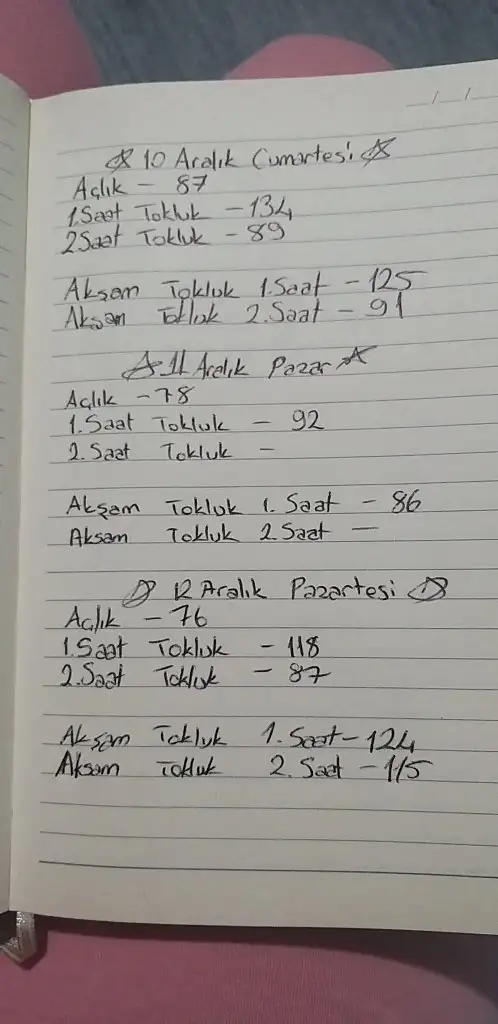 10 Aralık Cumartesi
Açlık - 87
1.Saat Tokluk - 134
2.Saat Tokluk - 89
Akşam Tokluk 1.Saat - 125
Akşam Tokluk 2.Saat - 91
11 Aralık Pazar
Açlık - 78
1.Saat Tokluk - 92
2.Saat Tokluk -
Akşam Tokluk 1. Saat - 86
Aksam Tokluk 2.Saat -
12 Aralık Pazartesi
Açlık - 76
1.Saat Tokluk - 118
2.Saat Tokluk - 87
Akşam Tokluk 1.Saat - 124
Aksam Tokluk 2. Saat - 115